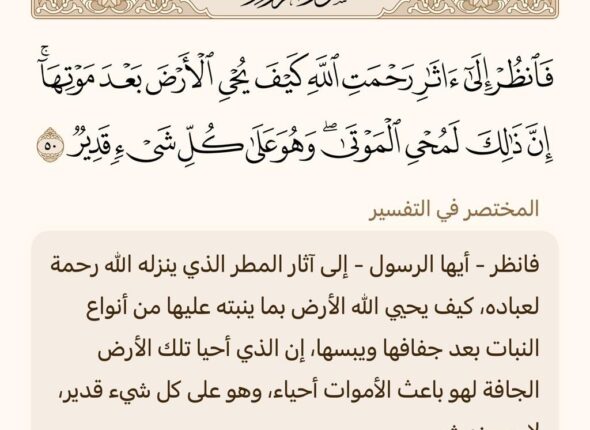 فَٱنظُرۡ إِلَىٰٓ ءَاثَٰرِ رَحۡمَتِ ٱللَّهِ كَيۡفَ يُحۡيِ ٱلۡأَرۡضَ بَعۡدَ مَوۡتِهَآۚ
إِنَّ ذَٰلِكَ لَمُحۡيِ ٱلۡمَوۡتَىٰۖ وَهُوَ عَلَىٰ كُلِّ شَيۡءٖ قَدِيرٞ ٥٠
المختصر في التفسير
فانظر - أيها الرسول - إلى آثار المطر الذي ينزله الله رحمة
لعباده، كيف يحيي الله الأرض بما ينبته عليها من أنواع
النبات بعد جفافها ويبسها، إن الذي أحيا تلك الأرض
الجافة لهو باعث الأموات أحياء، وهو على كل شيء قدير،